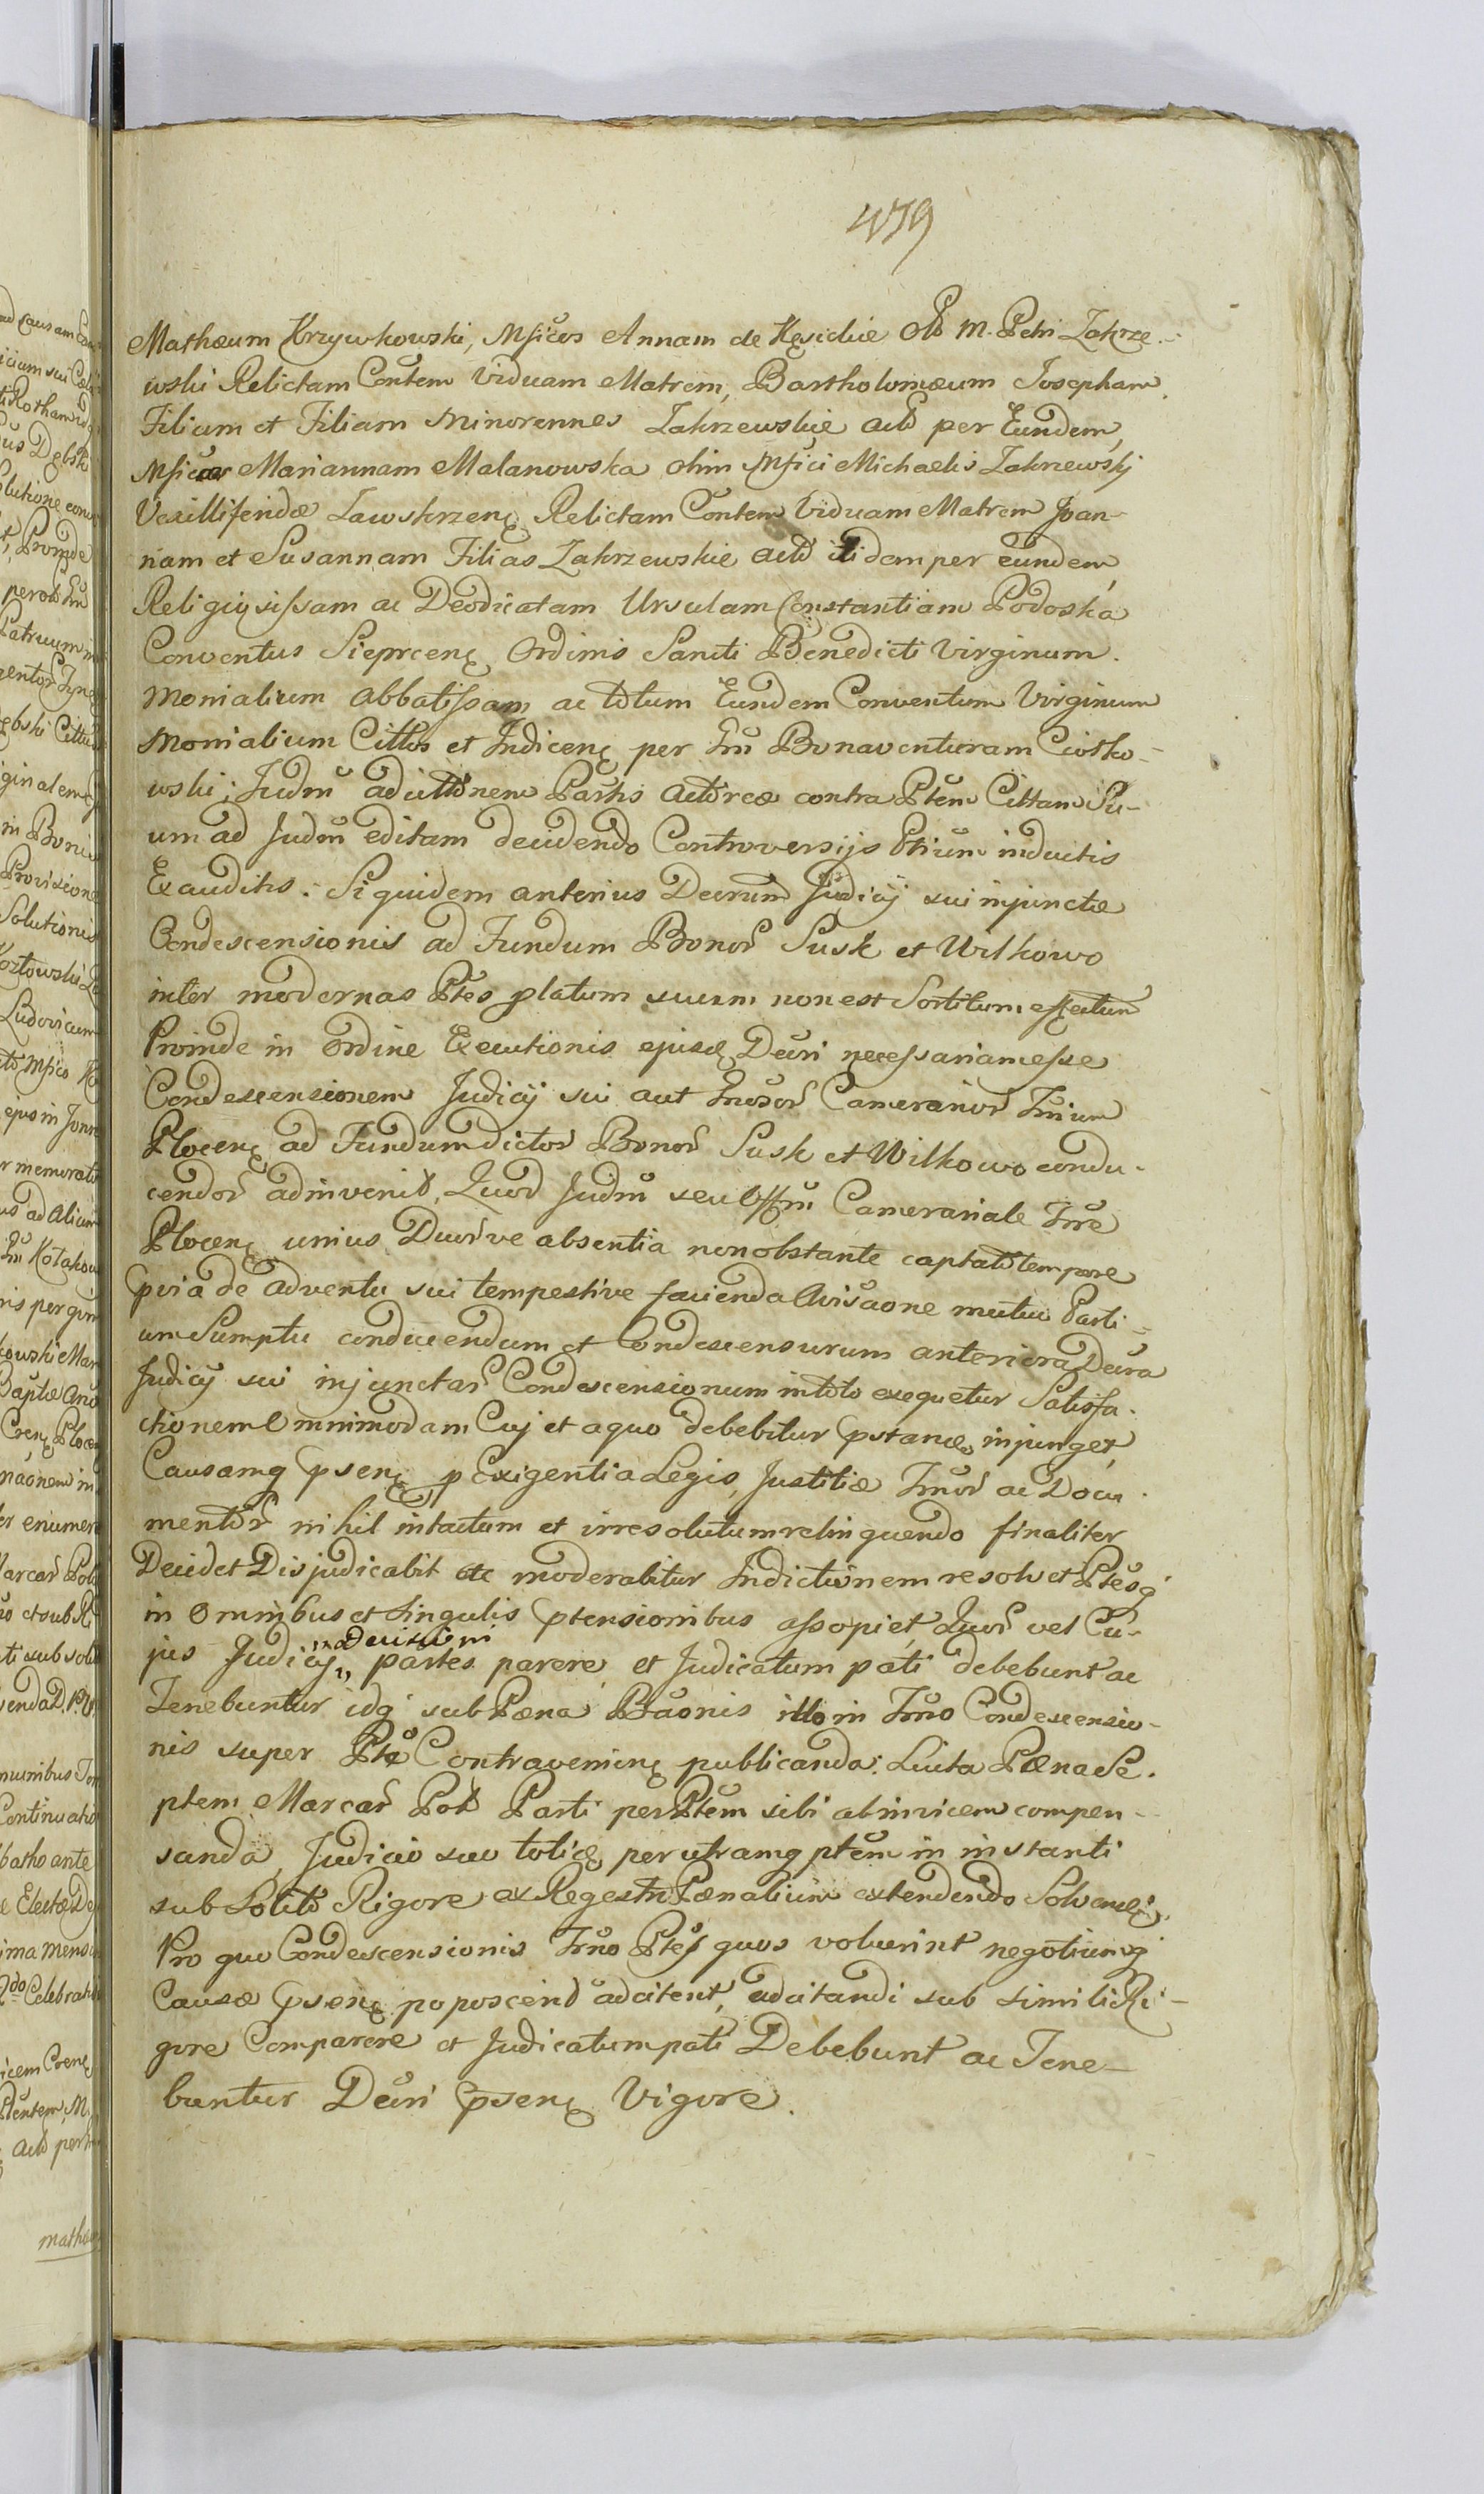 479
Mathæum Krzywkowski, Mficos Annam de Kęsickie Olb M. Petri Zakrze-
wski Relictam Contem Viduam Matrem, Bartholomæum Josepham
Filium et Filiam Minorennes Zakrzewskie actō per Eundem,
Mficas Mariannam Malanowska olim Mfici Michaelis Zakrzewskj
Vexilliferidæ Zawskrzenę Relictam Contem Viduam Matrem Joan-
nam et Susannam Filias Zakrzewskie actō itidem per eundem,
Religiosissam ac Deodicatam Ursulam Constantiam Podoska
Conventus Sieprcenę Ordinis Sancti Benedicti Virginum
Monialium Abbatissam ac totum Eundem Conventum Virginum
Monialium Cittos et Indicenę per Im Bonaventuram Ciotko-
wski; Judm ad cittōnem Partis Actoreæ contra Ptem Cittam Su-
um ad Judm editam decidendo Controversijs Ptium inductis
Exauditis. Siquidem anterius Decrum Judicij sui injunctæ
Condescensionis ad Fundum Bonor Susk et Wilkowo
inter modernas Ptes platum suum non est Sortitum effectum
Proinde in Ordine Executionis ejusd Decri necessariam esse
Condescensionem Judicij sui aut Camerarior Trium
Plocenę ad Fundum dictor Bonor Susk et Wilkowo condu-
cendor adinvenit, Quod Judm seu Offm Camerariale Trre
Plocenę unius Duor ve absentia non obstante captato tempore
pvia de Adventu sui tempestive facienda Avisaone mutuo Parti-
um Sumptu conducendum et Condescensurum anteriora Decra
Judicij sui injunctar Condescensionum in toto exequetur Satisfa-
ctionem Omnimodam Cuj et a quo debebitur pstandę injunget,
Causamq psenę p Exigentia Legis, Justitiæ Jnor ac Docu-
mentor nihil intactum et irresolutum relinquendo finaliter
Decidet Disjudicabit ac moderabitur Indictionem resolvet Ptesq
in Omnibus et Singulis ptensionibus assopiet, Quor vel Cu-
jus Judicij decisioni partes parere, et Judicatum pati debebunt ac
Tenebuntur idq sub Pæna Bāonis illo in Trno Condescensio-
nis super Pte Contravenienę publicanda. Luita Pæna Se-
ptem Marcar Pol Parti per Ptem sibi ab invicem compen-
sanda, Judicio suo totidę per utramq ptem in instanti
sub Solito Rigore ex Regestri Pænalium extendendo Solvendę.
Pro quo Condescensionis Trno Ptes quos voluerint negotiumq
Causæ psenę poposcerit adcitent, adcitandi sub simili Ri-
gore Comparere et Judicatum pati Debebunt ac Tene-
buntur Decri psenę Vigore.